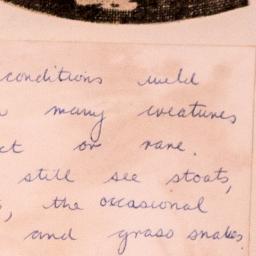 conditions weld
many creatures
ct or rare.
still see stoats,
, the occasional
and grass snakes.